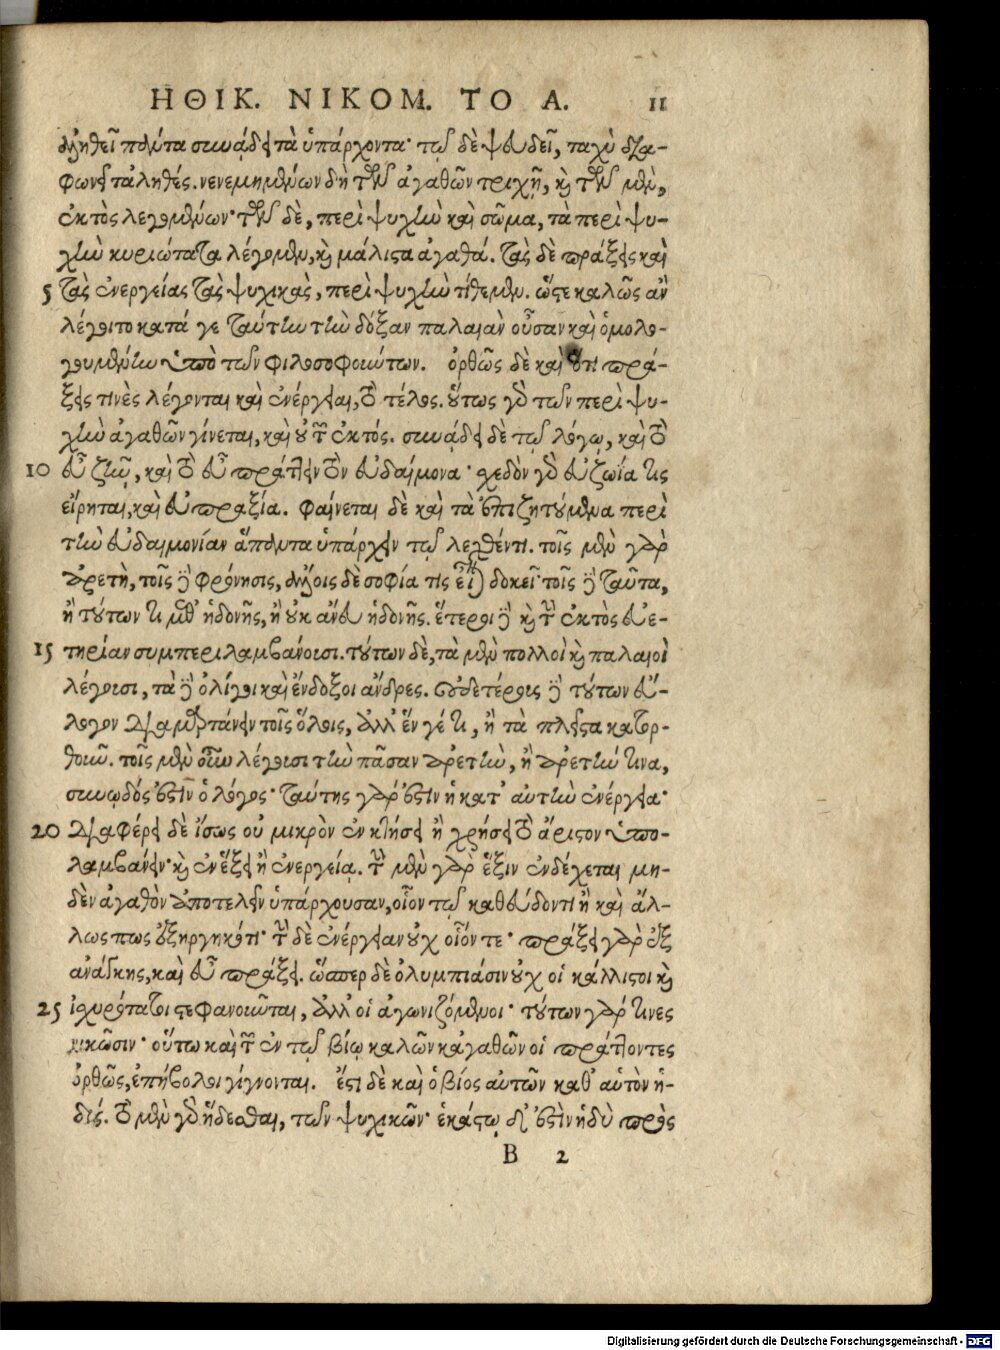 ΗΘΙΚ. ΝΙΚΟΜ. ΤΟ Α. 11
ἀληθεῖ πάντα συνάδει τὰ ὑπάρχοντα· τῷ δὲ ψευδεῖ, ταχὺ δια-
φωνεῖ τἀληθές. νενεμημένων δὴ τῶν ἀγαθῶν τριχῇ, καὶ τῶν μὲν,
ἐκτὸς λεγομένων· τῶν δὲ, περὶ ψυχὴν καὶ σῶμα, τὰ περὶ ψυ-
χὴν κυριώτατα λέγομεν, καὶ μάλιστα ἀγαθά. τὰς δὲ πράξεις καὶ
5 τὰς ἐνεργείας τὰς ψυχικὰς, περὶ ψυχὴν τίθεμεν. ὥστε καλῶς ἂν
λέγοιτο κατά γε ταύτην τὴν δόξαν παλαιὰν οὖσαν καὶ ὁμολο-
γουμένην ὑπὸ τῶν φιλοσοφούντων. ὀρθῶς δὲ καὶ ὅτι πρά-
ξεις τινὲς λέγονται καὶ ἐνέργειαι, τὸ τέλος. οὕτως γὰρ τῶν περὶ ψυ-
χὴν ἀγαθῶν γίνεται, καὶ οὐ τῶν ἐκτός. συνάδει δὲ τῷ λόγῳ, καὶ τὸ
10 εὖ ζῆν, καὶ τὸ εὖ πράττειν τὸν εὐδαίμονα· σχεδὸν γὰρ εὐζωΐα τις
εἴρηται, καὶ εὐπραξία. φαίνεται δὲ καὶ τὰ ἐπιζητούμενα περὶ
τὴν εὐδαιμονίαν ἅπαντα ὑπάρχειν τῷ λεχθέντι. τοῖς μὲν γὰρ
ἀρετὴ, τοῖς δὲ φρόνησις, ἄλλοις δὲ σοφία τις εἶναι δοκεῖ· τοῖς δὲ ταῦτα,
ἢ τούτων τι μεθ' ἡδονῆς, ἢ οὐκ ἄνευ ἡδονῆς. ἕτεροι δὲ καὶ τὴν ἐκτὸς εὐε-
15 τηρίαν συμπεριλαμβάνουσι. τούτων δὲ, τὰ μὲν πολλοὶ καὶ παλαιοὶ
λέγουσι, τὰ δὲ ὀλίγοι καὶ ἔνδοξοι ἄνδρες. οὐδετέρους δὲ τούτων εὔ-
λογον διαμαρτάνειν τοῖς ὅλοις, ἀλλ' ἕν γέ τι, ἢ τὰ πλεῖστα κατορ-
θοῦν. τοῖς μὲν οὖν λέγουσι τὴν πᾶσαν ἀρετὴν, ἢ ἀρετήν τινα,
συνῳδός ἐστιν ὁ λόγος· ταύτης γάρ ἐστιν ἡ κατ' αὐτὴν ἐνέργεια·
20 διαφέρει δὲ ἴσως οὐ μικρὸν ἐν κτήσει ἢ χρήσει τὸ ἄριστον ὑπο-
λαμβάνειν· καὶ ἐν ἕξει ἢ ἐνεργείᾳ. τὴν μὲν γὰρ ἕξιν ἐνδέχεται μη-
δὲν ἀγαθὸν ἀποτελεῖν ὑπάρχουσαν, οἷον τῷ καθεύδοντι ἢ καὶ ἄλ-
λως πως ἐξηργηκότι· τὴν δὲ ἐνέργειαν οὐχ οἷόν τε· πράξει γὰρ ἐξ
ἀνάγκης, καὶ εὖ πράξει. ὥσπερ δὲ ὀλυμπιάσιν οὐχ οἱ κάλλιστοι καὶ
25 ἰσχυρότατοι στεφανοῦνται, ἀλλ' οἱ ἀγωνιζόμενοι· τούτων γάρ τινες
νικῶσιν· οὕτω καὶ τῶν ἐν τῷ βίῳ καλῶν κἀγαθῶν οἱ πράττοντες
ὀρθῶς, ἐπήβολοι γίγνονται. ἔστι δὲ καὶ ὁ βίος αὐτῶν καθ' αὑτὸν ἡ-
δύς. τὸ μὲν γὰρ ἥδεσθαι, τῶν ψυχικῶν· ἑκάστῳ δ' ἐστὶν ἡδὺ πρὸς
B 2
Digitalisierung gefördert durch die Deutsche Forschungsgemeinschaft - DFG